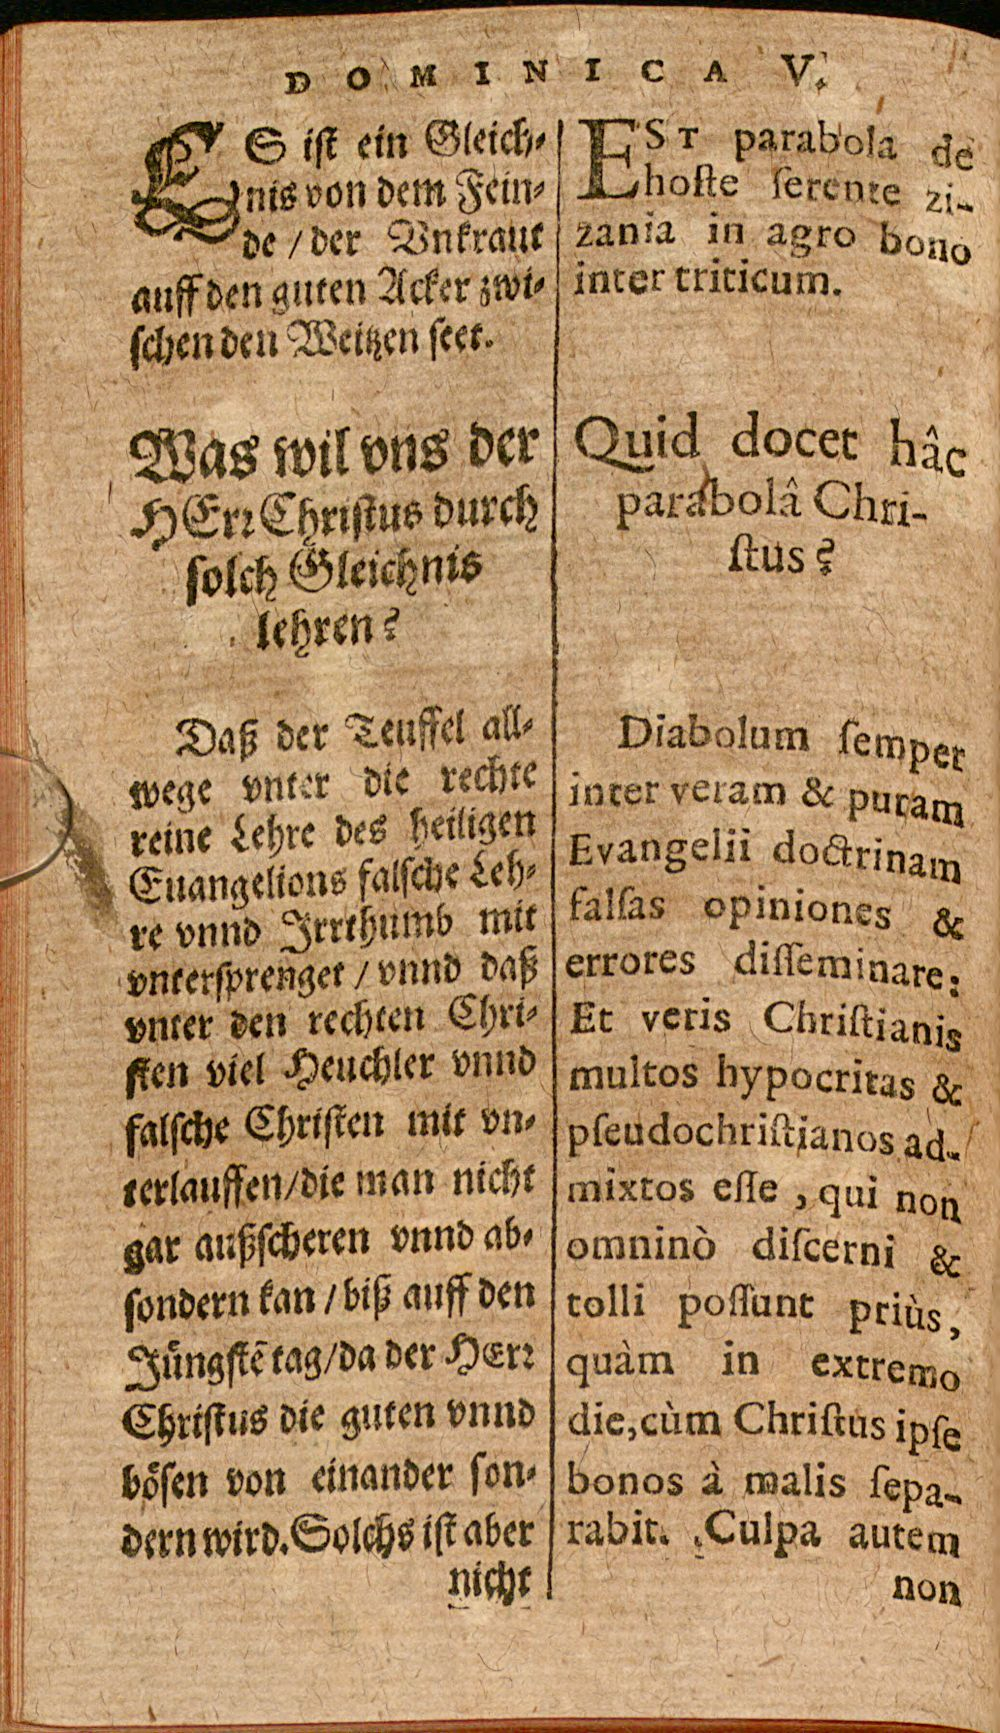 DOMINICA V.
ES ist ein Gleich-
nis von dem Fein-
de / der Vnkraut
auff den guten Acker zwi-
schen den Weitzen seet.
Was wil vns der
HErr Christus durch
solch Gleichnis
lehren?
Daß der Teuffel all-
wege vnter die rechte
reine Lehre des heiligen
Euangelions falsche Leh-
re vnnd Irrthumb mit
vntersprenget / vnnd daß
vnter den rechten Chri-
sten viel Heuchler vnnd
falsche Christen mit vn-
terlauffen/die man nicht
gar außscheren vnnd ab-
sondern kan / biß auff den
Jüngstē tag/da der HErr
Christus die guten vnnd
bösen von einander son-
dern wird. Solchs ist aber
nicht
EST parabola de
hoſte ſerente zi-
zania in agro bono
inter triticum.
Quid docet hâc
parabolâ Chri-
ſtus?
Diabolum ſemper
inter veram & puram
Evangelii doctrinam
falſas opiniones &
errores diſſeminare:
Et veris Chriſtianis
multos hypocritas &
pſeudochriſtianos ad-
mixtos eſſe , qui non
omninò diſcerni &
tolli poſſunt priùs,
quàm in extremo
die, cùm Chriſtus ipſe
bonos à malis ſepa-
rabit. Culpa autem
non